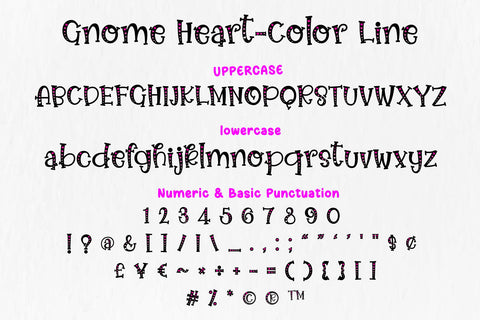 Gnome Heart-Color Line
UPPERCASE
ABCDEFGHIJKLMNOPQRSTUVWXYZ
lowercase
abcdefghijklmnopqrstuvwxyz
Numeric & Basic Punctuation
1 2 3 4 5 6 7 8 9 0
! ? @ & [ ] / | \ _ . , : ; “ ” ‘ ’ ' " $ ¢
£ ¥ € ~ × + ÷ - = ( ) { } [ ]
# % * © ® ™